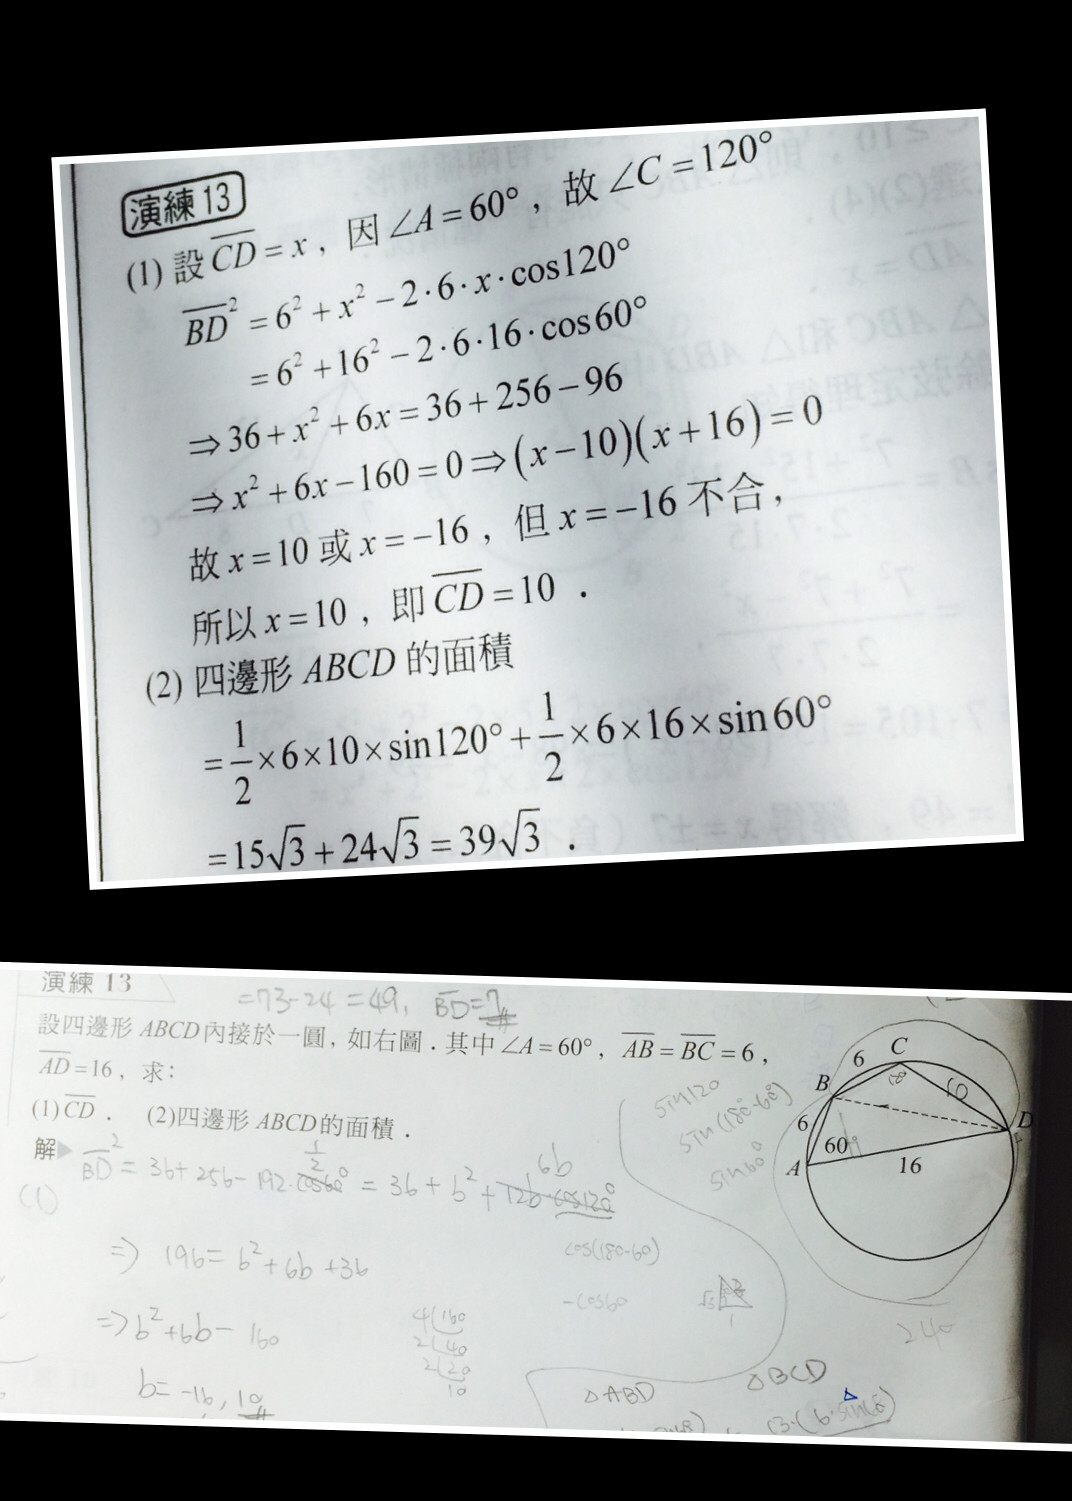 演練 13
(1) 設 CD = x , 因 ∠A = 60° , 故 ∠C = 120°
BD² = 6² + x² − 2·6·x·cos120°
= 6² + 16² − 2·6·16·cos60°
⇒ 36 + x² + 6x = 36 + 256 − 96
⇒ x² + 6x − 160 = 0 ⇒ (x − 10)(x + 16) = 0
故 x = 10 或 x = −16 , 但 x = −16 不合 ,
所以 x = 10 , 即 CD = 10 .
(2) 四邊形 ABCD 的面積
= 1/2 × 6 × 10 × sin120° + 1/2 × 6 × 16 × sin60°
= 15√3 + 24√3 = 39√3 .
演練 13
= 73 - 24 = 49, BD = 7
設四邊形 ABCD 內接於一圓 , 如右圖 . 其中 ∠A = 60° , AB = BC = 6 ,
AD = 16 , 求 :
(1) CD . (2) 四邊形 ABCD 的面積 .
解
BD² = 36 + 256 - 192·cos60° = 36 + b² + 12b·cos120°
1/2
6b
(1)
⇒ 196 = b² + 6b + 36
⇒ b² + 6b - 160
b = -16, 10
4 160
2 40
2 20
10
sin120
sin(180-60°)
sin60°
cos(180-60)
-cos60
△ABD
△BCD
240
C
6
B
D
6
60
A
16